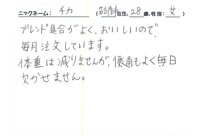 ニックネーム： チカ （ 在住, 28 歳, 性別： 女 ）
ブレンド具合がよく、おいしいので、
毎月注文しています。
体重は減りませんが、便通もよく毎日
欠かせません。